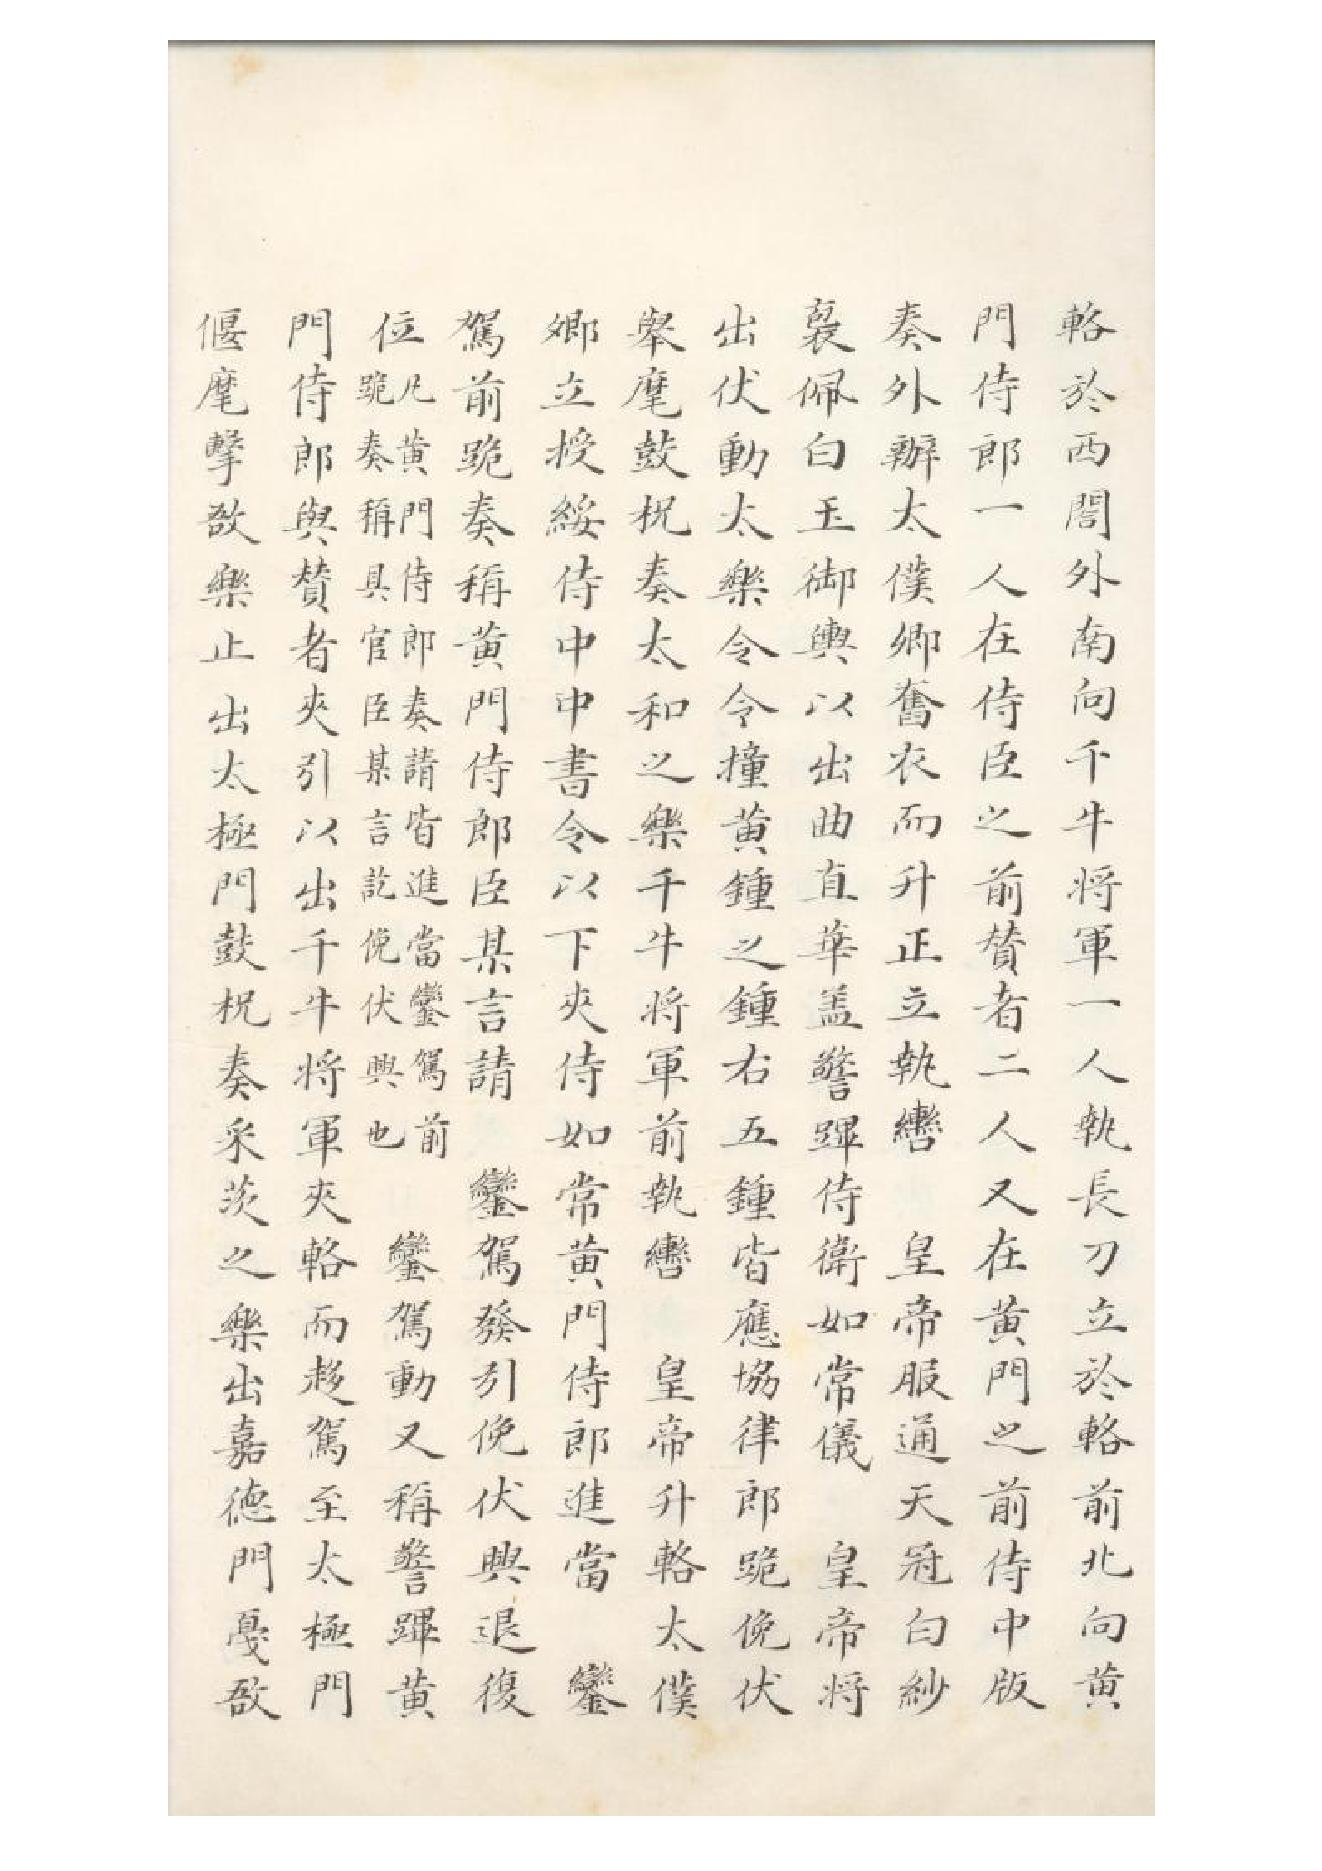 輅於西閤外南向千牛將軍一人執長刀立於輅前北向黄
門侍郎一人在侍臣之前賛者二人又在黄門之前侍中版
奏外辦太僕卿奮衣而升正立執轡　皇帝服通天冠白紗
裠佩白玉御輿以出曲直華盖警蹕侍衛如常儀　皇帝將
出伏動太樂令令撞黄鍾之鍾右五鍾皆應協律郎跪俛伏
舉麾鼓柷奏太和之樂千牛將軍前執轡　皇帝升輅太僕
卿立授綏侍中中書令以下夾侍如常黄門侍郎進當　鑾
駕前跪奏稱黄門侍郎臣某言請　鑾駕發引俛伏興退復
位凡黄門侍郎奏請皆進當鑾駕前跪奏稱具官臣某言訖俛伏興也　鑾駕動又稱警蹕黄
門侍郎與賛者夾引以出千牛將軍夾輅而趍駕至太極門
偃麾擊敔樂止出太極門鼓柷奏采茨之樂出嘉德門戞敔